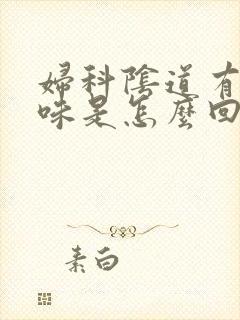 婦科陰道有
味是怎麼回
素白